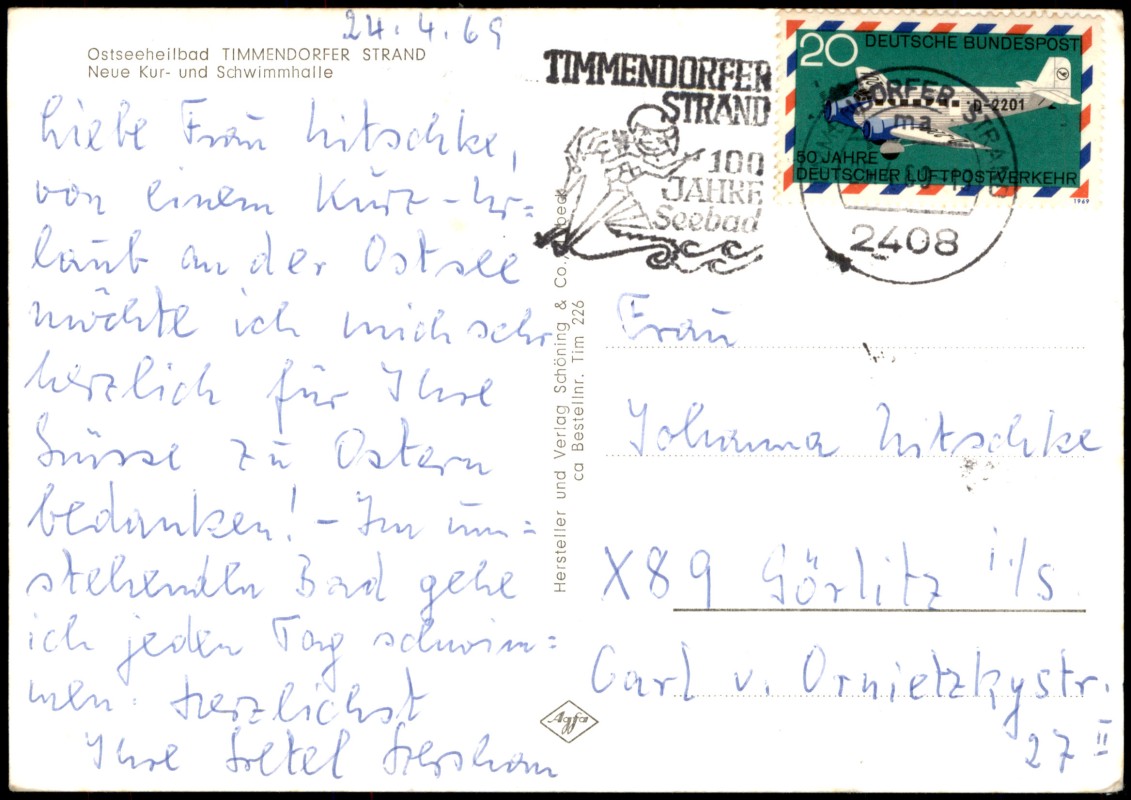 24.4.69
Ostseeheilbad TIMMENDORFER STRAND
Neue Kur- und Schwimmhalle
Liebe Frau Nitschke,
von einem Kurz-Ur=
laub an der Ostsee
möchte ich mich sehr
herzlich für Ihre
Grüsse zu Ostern
bedanken! - Im um=
stehenden Bad gehe
ich jeden Tag schwim=
men. Herzlichst
Ihre Gretel
Hersteller und Verlag Schöning & Co., Lübeck
ca Bestellnr. Tim 226
Agfa
TIMMENDORFER
STRAND
100
JAHRE
Seebad
20 DEUTSCHE BUNDESPOST
D-2201
50 JAHRE
DEUTSCHER LUFTPOSTVERKEHR
1969
STRAND
ma
2408
Frau
Johanna Nitschke
X89 Görlitz i/S.
Carl v. Ornietzkystr.
27 II